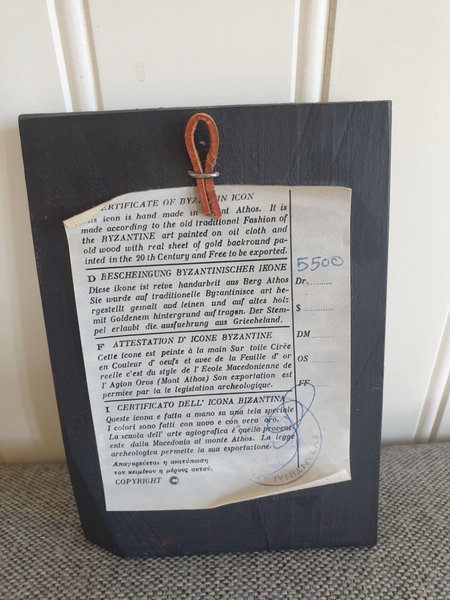 CERTIFICATE OF BYZANTIN ICON
This icon is hand made in Mont Athos. It is
made according to the old traditional Fashion of
the BYZANTINE art painted on oil cloth and
old wood with real sheet of gold backround pa-
inted in the 20 th Century and Free to be exported.
D BESCHEINGUNG BYZANTINISCHER IKONE
Diese ikone ist reive handarbeit aus Berg Athos
Sie wurde auf traditionelle Byzantinisce art he-
rgestellt gemalt auf leinen und auf altes holz
mit Goldenem hintergrund auf tragen. Der Stem-
pel erlaubt die ausfuehrung aus Griecheland.
F ATTESTATION D' ICONE BYZANTINE
Cette icone est peinte à la main Sur toile Cirée
en Couleur d' oeufs et avec de la Feuille d' or
reelle c'est du style de l' Ecole Macedonienne de
l' Agion Oros (Mont Athos) Son exportation est
permise par la le gistation archeologique.
I CERTIFICATO DELL' ICONA BIZANTINA
Queste icona e fatta a mano su una tela speciale
I colori sono fatti con uovo e con vero oro.
La scuola dell' arte agiografica è quella provent
ente dalla Macedonia al monte Athos. La legge
archeologica permette la sua esportazione.
Απαγορεύεται η ανατύπωση
του κειμένου η μέρους αυτού.
COPYRIGHT ©
5500
Dr.
$
DM
OS
FF